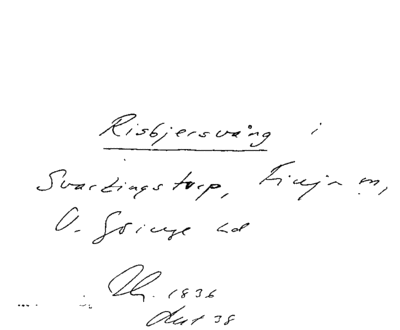 Risbjersvång i
Svartingstorp, Finja sn,
V. Göinge hd
1836
38